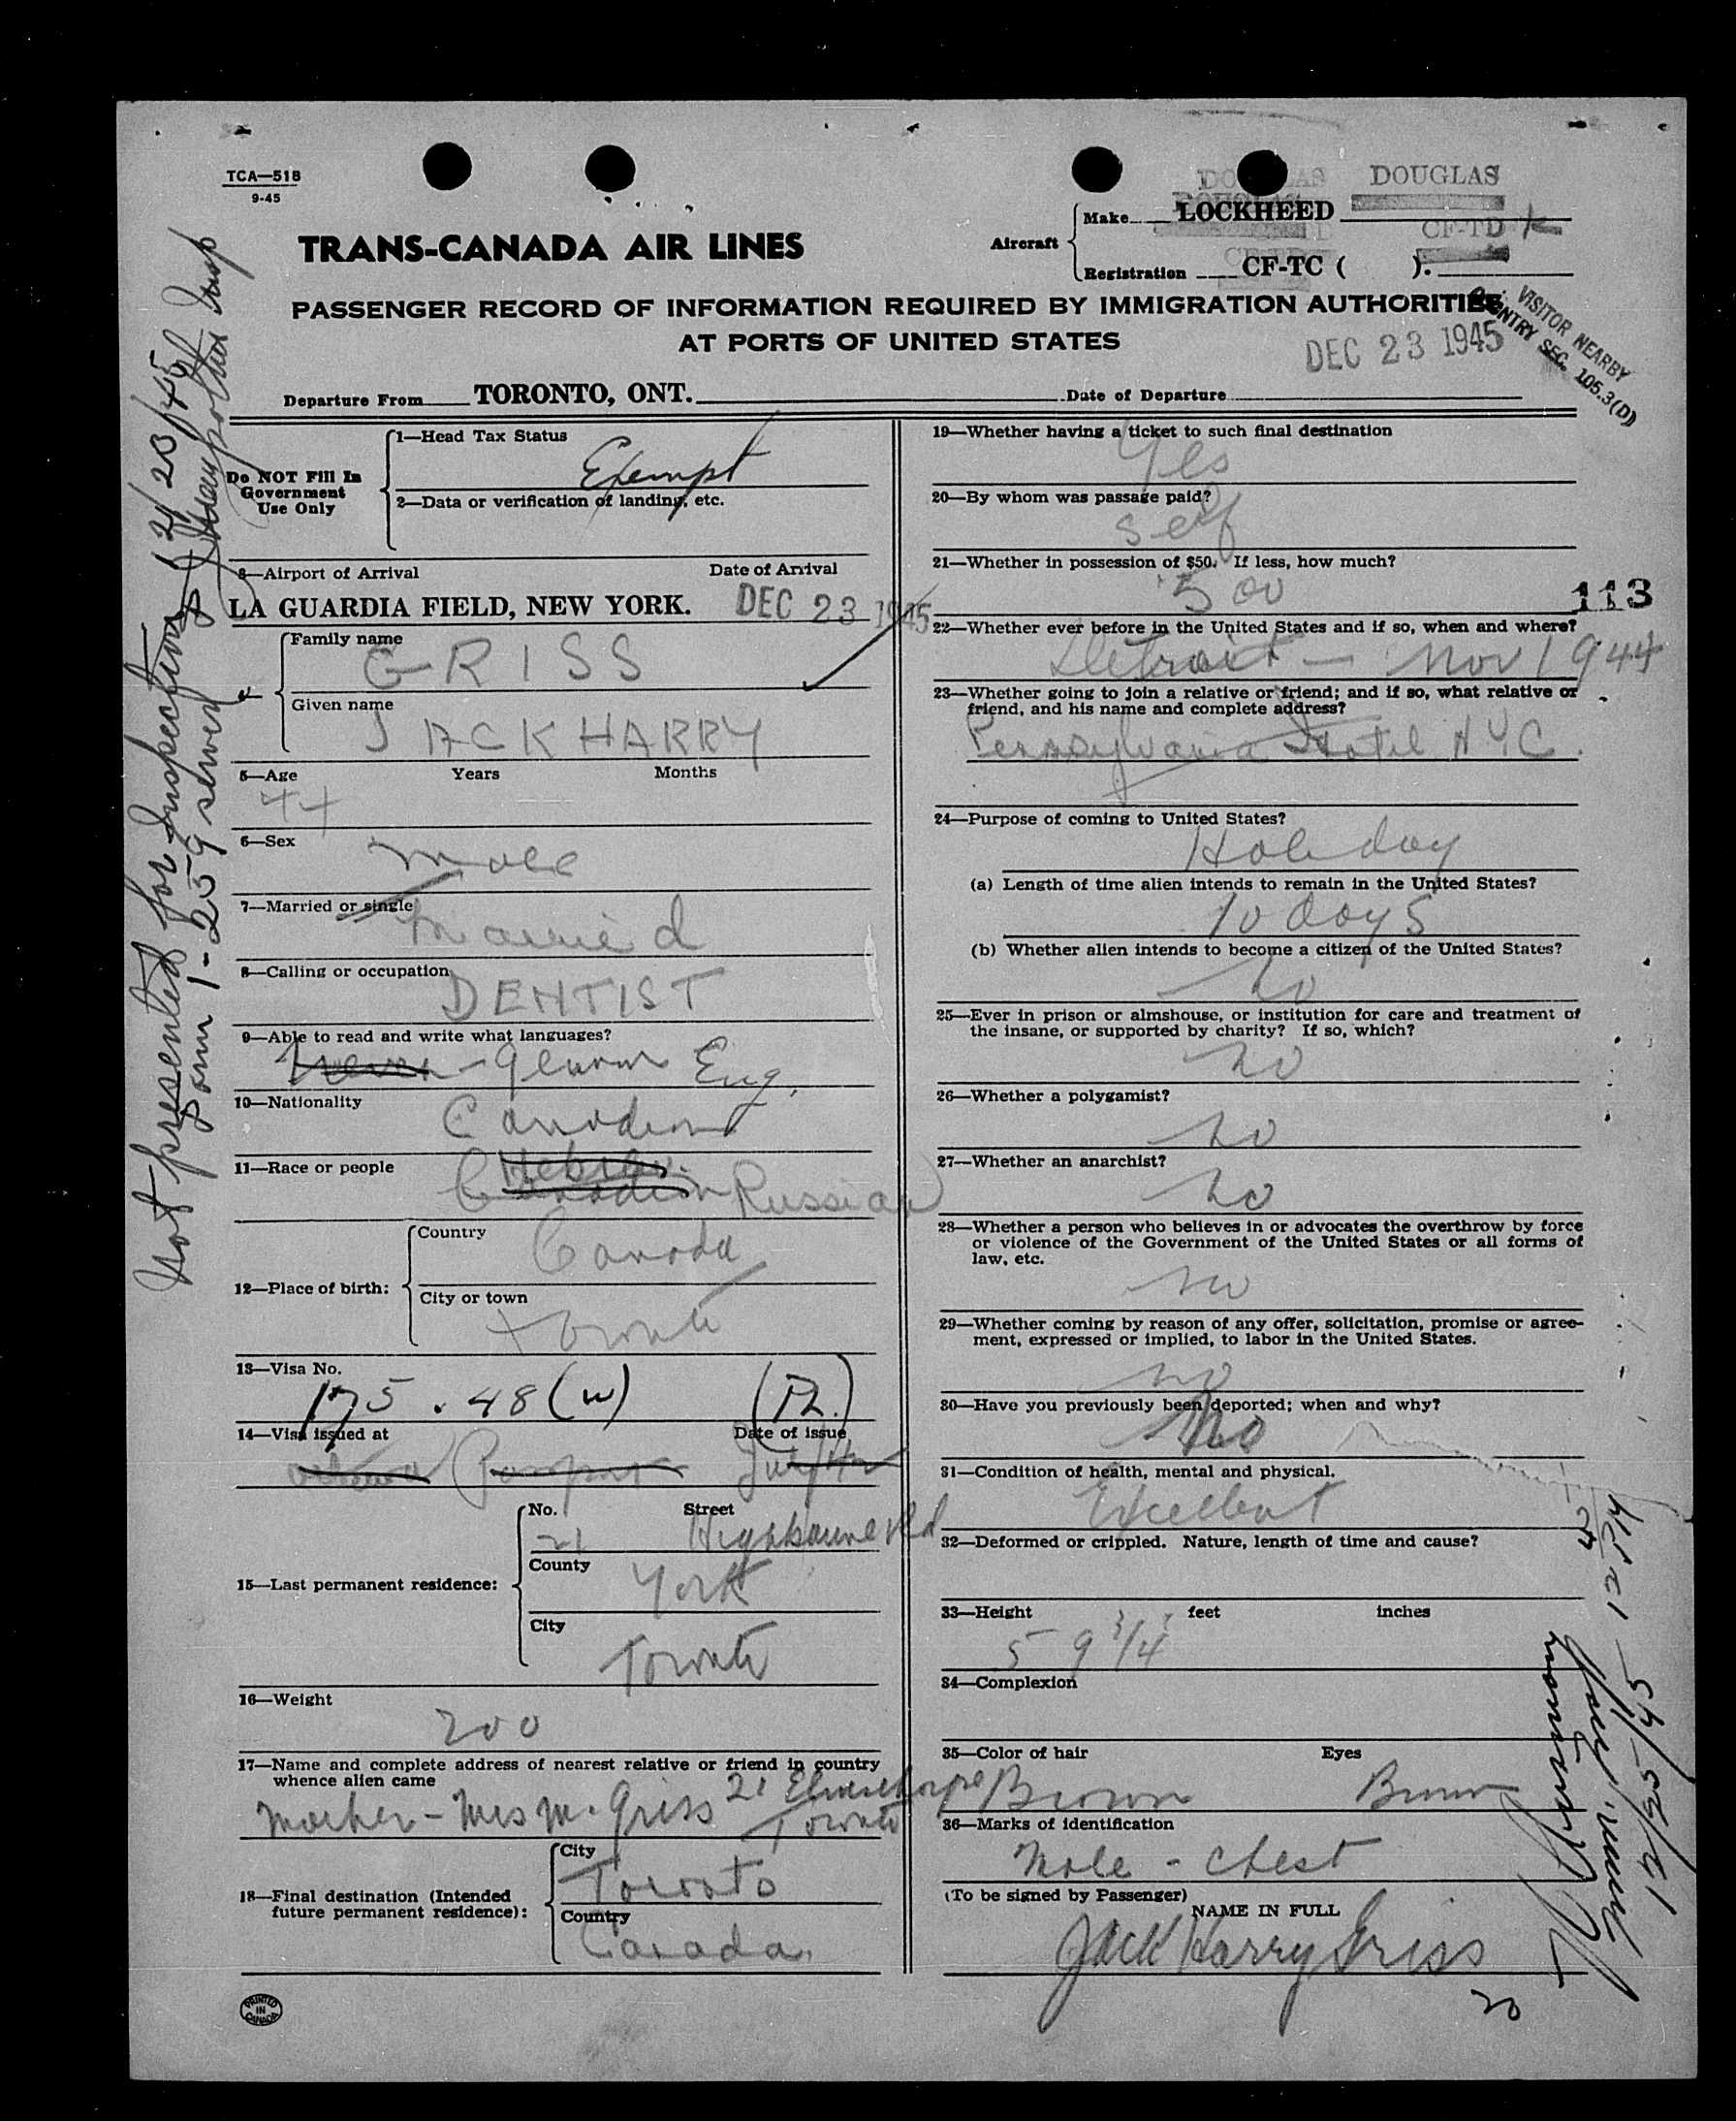 TCA—518
9-45
DOUGLAS
DOUGLAS
Aircraft
Make LOCKHEED
CF-TD K
Registration CF-TC ( ).
TRANS-CANADA AIR LINES
PASSENGER RECORD OF INFORMATION REQUIRED BY IMMIGRATION AUTHORITIES
AT PORTS OF UNITED STATES
VISITOR NEARBY
COUNTRY SEC. 105.3(D)
DEC 23 1945
Departure From TORONTO, ONT. Date of Departure
Not presented for Inspection 12/23/45
Form 1-259 served
Do NOT Fill In
Government
Use Only
1—Head Tax Status
Exempt
2—Data or verification of landing, etc.
3—Airport of Arrival Date of Arrival
LA GUARDIA FIELD, NEW YORK. DEC 23 1945
Family name
GRISS
Given name
JACK HARRY
5—Age Years Months
44
6—Sex
Male
7—Married or single
Married
8—Calling or occupation
DENTIST
9—Able to read and write what languages?
German Eng.
10—Nationality
Canadian
11—Race or people
Hebrew
Canadian Russian
12—Place of birth:
Country
Canada
City or town
Toronto
13—Visa No.
175.48 (W)
14—Visa issued at Date of issue
15—Last permanent residence:
No. Street
21 Highbourne Rd
County
York
City
Toronto
16—Weight
200
17—Name and complete address of nearest relative or friend in country
whence alien came
Mother - Mrs M. Griss 21
Toronto
18—Final destination (Intended
future permanent residence):
City
Toronto
Country
Canada.
PRINTED
IN
CANADA
19—Whether having a ticket to such final destination
Yes
20—By whom was passage paid?
Self
21—Whether in possession of $50. If less, how much?
500
113
22—Whether ever before in the United States and if so, when and where?
Detroit - Nov 1944
23—Whether going to join a relative or friend; and if so, what relative or
friend, and his name and complete address?
Pennsylvania Hotel N.Y.C.
24—Purpose of coming to United States?
Holiday
(a) Length of time alien intends to remain in the United States?
10 days
(b) Whether alien intends to become a citizen of the United States?
no
25—Ever in prison or almshouse, or institution for care and treatment of
the insane, or supported by charity? If so, which?
no
26—Whether a polygamist?
no
27—Whether an anarchist?
no
28—Whether a person who believes in or advocates the overthrow by force
or violence of the Government of the United States or all forms of
law, etc.
no
29—Whether coming by reason of any offer, solicitation, promise or agree-
ment, expressed or implied, to labor in the United States.
no
30—Have you previously been deported; when and why?
No
31—Condition of health, mental and physical.
Excellent
32—Deformed or crippled. Nature, length of time and cause?
33—Height feet inches
5 9 3/4
34—Complexion
35—Color of hair Eyes
Brown Brown
36—Marks of identification
Mole - chest
(To be signed by Passenger)
NAME IN FULL
Jack Harry Griss
12/25/45